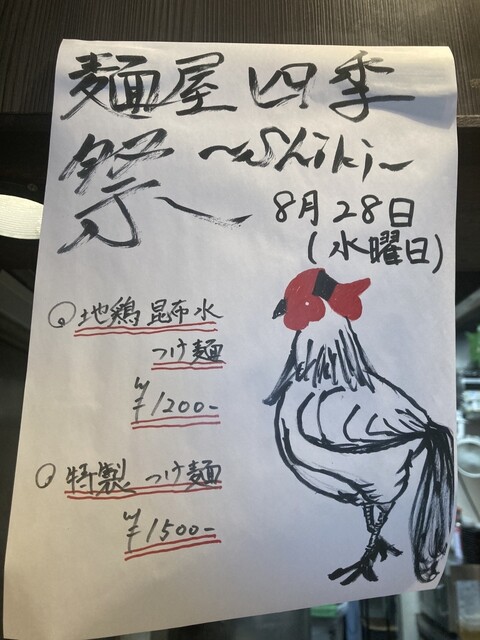 麺屋 四季
祭 ~Shiki~
8月28日
(水曜日)
地鶏 昆布水
つけ麺
¥1200-
特製 つけ麺
¥1500-